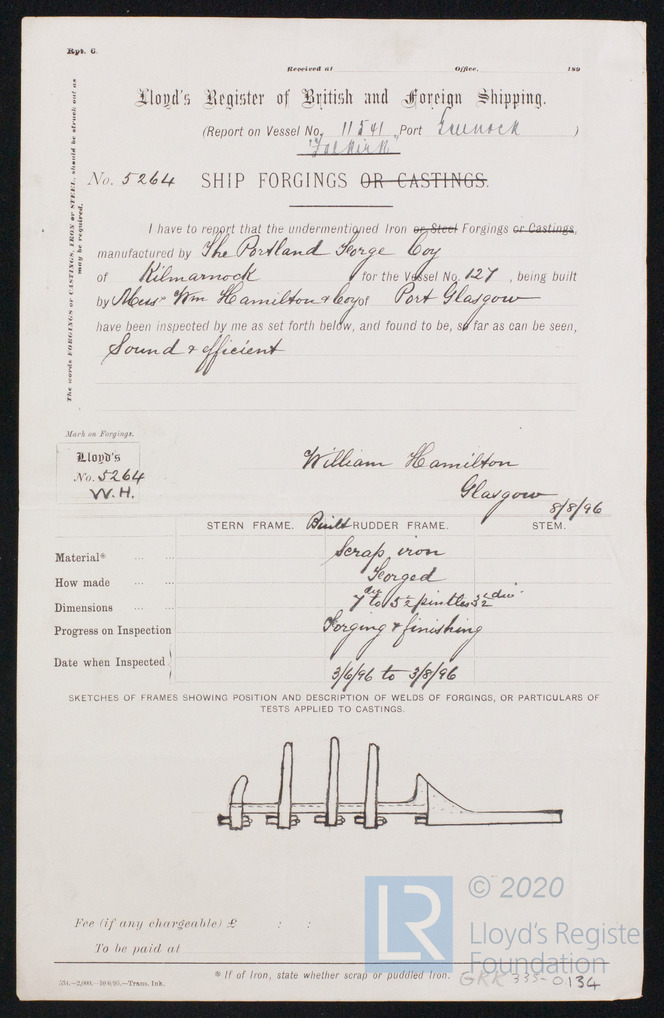 Rpt. 6.
Received at Office, 189
Lloyd's Register of British and Foreign Shipping.
(Report on Vessel No. 11541 Port Greenock )
"Falkirk"
No. 5264 SHIP FORGINGS OR CASTINGS.
The words FORGINGS or CASTINGS, IRON or STEEL, should be struck out as may be required.
I have to report that the undermentioned Iron or Steel Forgings or Castings,
manufactured by The Portland Forge Coy
of Kilmarnock for the Vessel No. 127 , being built
by Mess Wm Hamilton & Coy of Port Glasgow
have been inspected by me as set forth below, and found to be, so far as can be seen,
Sound & efficient
Mark on Forgings.
Lloyd's
No. 5264
W.H.
William Hamilton
Glasgow
8/8/96
STERN FRAME. Built RUDDER FRAME. STEM.
Material* Scrap iron
How made Forged
Dimensions 7 dia to 5½ pintles 3½ dia
Progress on Inspection Forging & finishing
Date when Inspected 3/6/96 to 3/8/96
SKETCHES OF FRAMES SHOWING POSITION AND DESCRIPTION OF WELDS OF FORGINGS, OR PARTICULARS OF
TESTS APPLIED TO CASTINGS.
Fee (if any chargeable) £ : :
To be paid at
* If of Iron, state whether scrap or puddled Iron.
Trans. Ink.
LR
© 2020
Lloyd's Register
Foundation
GRK 335-0134